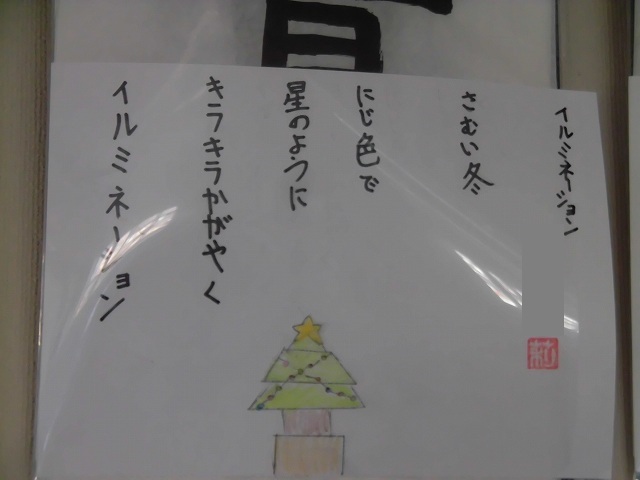 イルミネーション
さむい冬
にじ色で
星のように
キラキラかがやく
イルミネーション